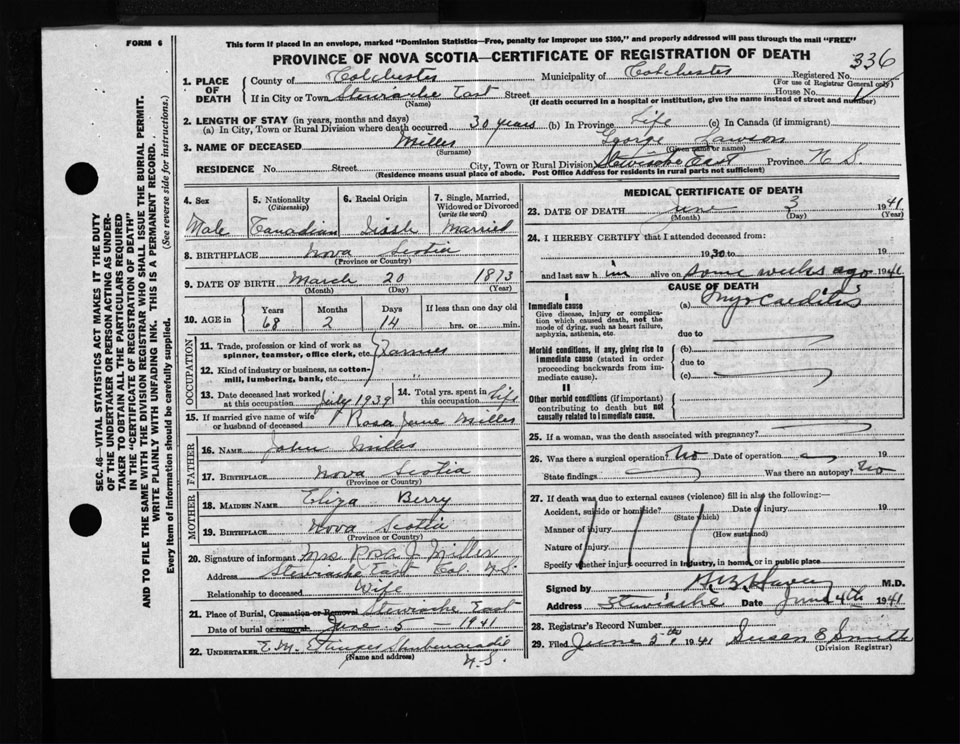 FORM 6
This form if placed in an envelope, marked "Dominion Statistics—Free, penalty for improper use $300," and properly addressed will pass through the mail "FREE"
PROVINCE OF NOVA SCOTIA—CERTIFICATE OF REGISTRATION OF DEATH
336
1. PLACE OF DEATH
County of Colchester Municipality of Colchester Registered No.
(For use of Registrar General only)
If in City or Town Stewiacke East Street House No.
(Name) (If death occurred in a hospital or institution, give the name instead of street and number)
2. LENGTH OF STAY (in years, months and days)
(a) In City, Town or Rural Division where death occurred 30 years (b) In Province Life (c) In Canada (if immigrant)
3. NAME OF DECEASED Milles George Lawson
(Surname) (Given name or names)
RESIDENCE No. Street City, Town or Rural Division Stewiacke East Province N S.
(Residence means usual place of abode. Post Office Address for residents in rural parts not sufficient)
4. Sex
Male
5. Nationality
(Citizenship)
Canadian
6. Racial Origin
7. Single, Married, Widowed or Divorced
(write the word)
Married
8. BIRTHPLACE Nova Scotia
(Province or Country)
9. DATE OF BIRTH March 20 1873
(Month) (Day) (Year)
10. AGE in
Years Months Days If less than one day old
68 2 14 hrs. or min.
OCCUPATION
11. Trade, profession or kind of work as spinner, teamster, office clerk, etc. Farmer
12. Kind of industry or business, as cotton-mill, lumbering, bank, etc. "
13. Date deceased last worked at this occupation July 1939
14. Total yrs. spent in this occupation Life
15. If married give name of wife or husband of deceased Rosa Jane Milles
FATHER
16. NAME John Milles
17. BIRTHPLACE Nova Scotia
(Province or Country)
MOTHER
18. MAIDEN NAME Eliza Berry
19. BIRTHPLACE Nova Scotia
(Province or Country)
20. Signature of informant Mrs Rosa J Milles
Address Stewiacke East Col. N.S.
Relationship to deceased Wife
21. Place of Burial, Cremation or Removal Stewiacke East
Date of burial or removal June 5 — 1941
22. UNDERTAKER E. M. Shubenacadie
(Name and address) N.S.
MEDICAL CERTIFICATE OF DEATH
23. DATE OF DEATH June 3 1941
(Month) (Day) (Year)
24. I HEREBY CERTIFY that I attended deceased from:
1930 to 19
and last saw h im alive on some weeks ago 1941
CAUSE OF DEATH
I
Immediate cause
Give disease, injury or complication which caused death, not the mode of dying, such as heart failure, asphyxia, asthenia, etc.
(a) Myocarditis
due to
Morbid conditions, if any, giving rise to immediate cause (stated in order proceeding backwards from immediate cause).
(b)
due to
(c)
II
Other morbid conditions (if important) contributing to death but not causally related to immediate cause.
25. If a woman, was the death associated with pregnancy?
26. Was there a surgical operation? No Date of operation 19
State findings Was there an autopsy? No
27. If death was due to external causes (violence) fill in also the following:—
Accident, suicide or homicide? Date of injury 19
(State which)
Manner of injury
(How sustained)
Nature of injury
Specify whether injury occurred in industry, in home, or in public place
Signed by M.D.
Address Stewiacke Date June 4th 1941
28. Registrar's Record Number
29. Filed June 5th 1941 Susan E Smith
(Division Registrar)
SEC. 46—VITAL STATISTICS ACT MAKES IT THE DUTY
OF THE UNDERTAKER OR PERSON ACTING AS UNDERTAKER
TO OBTAIN ALL THE PARTICULARS REQUIRED
IN THE "CERTIFICATE OF REGISTRATION OF DEATH"
AND TO FILE THE SAME WITH THE DIVISION REGISTRAR WHO SHALL ISSUE THE BURIAL PERMIT.
WRITE PLAINLY WITH UNFADING INK. THIS IS A PERMANENT RECORD.
Every item of information should be carefully supplied. (See reverse side for instructions.)